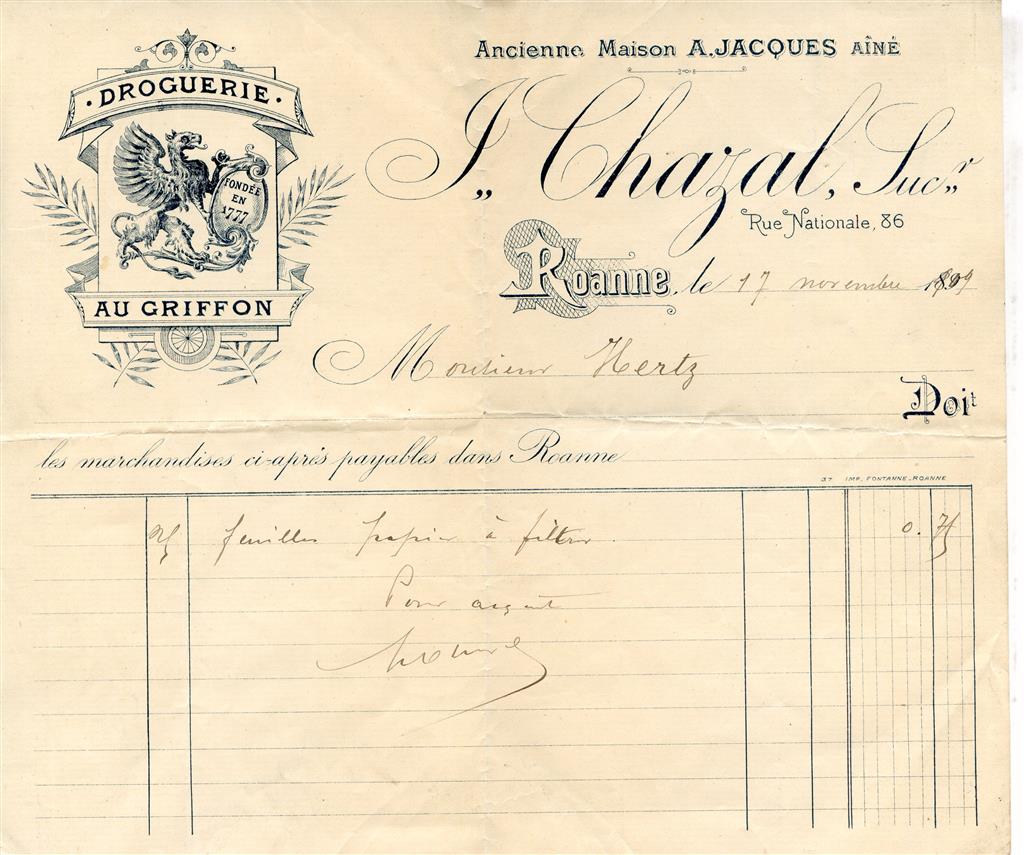 Ancienne Maison A. JACQUES AÎNÉ
· DROGUERIE ·
FONDÉE
EN
1777
AU GRIFFON
J. Chazal, Sucr
Rue Nationale, 86
Roanne, le 17 novembre
Monsieur Hertz
Doit
les marchandises ci-après payables dans Roanne
37 IMP. FONTANNE_ROANNE
25 feuilles papier à filtrer 0.75
Pour acquit